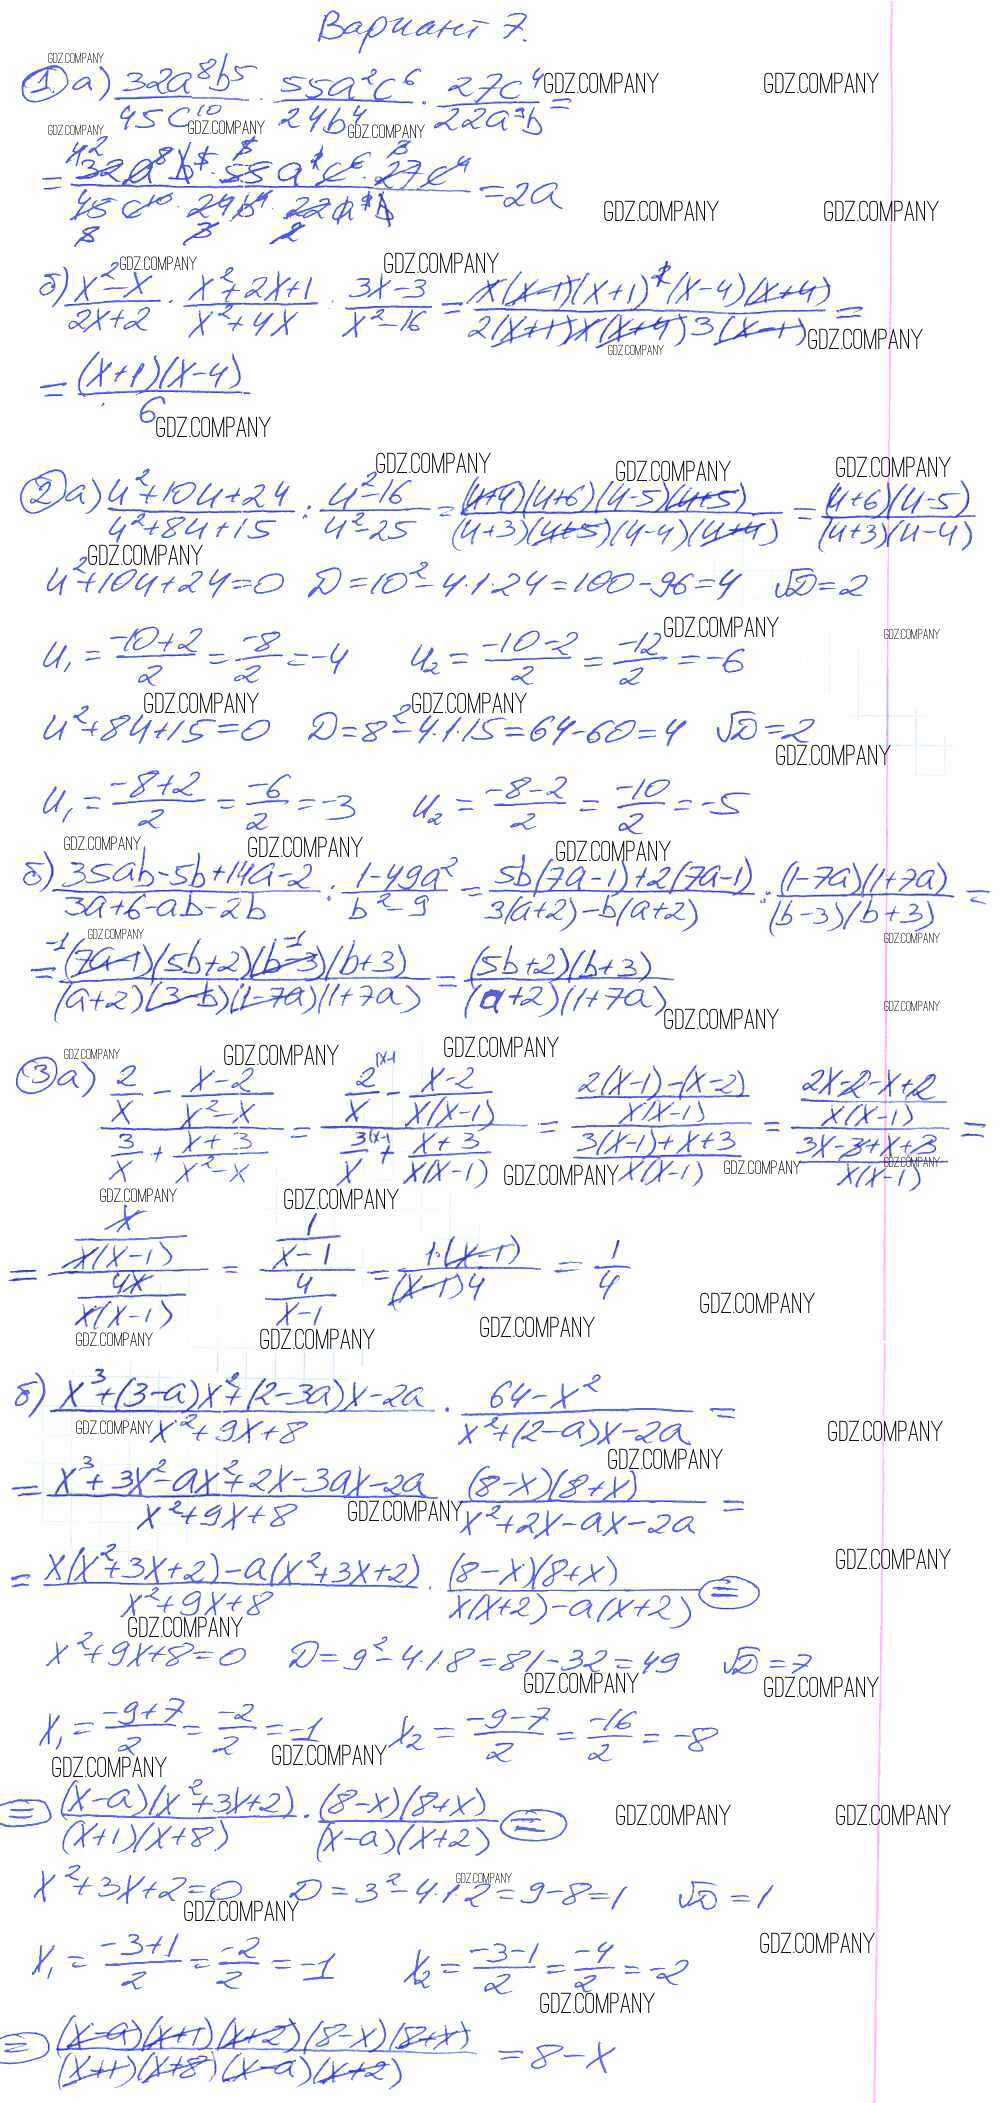 Вариант 7.
① а) 32a⁸b⁵/45c¹⁰ · 55a²c⁶/24b⁴ · 27c⁴/22a⁹b =
= 32a⁸b⁵·55a²c⁶·27c⁴ / 45c¹⁰·24b⁴·22a⁹b = 2a
б) (x²-x)/(2x+2) · (x²+2x+1)/(x²+4x) : (3x-3)/(x²-16) = x(x-1)(x+1)²(x-4)(x+4) / 2(x+1)x(x+4)3(x-1) =
= (x+1)(x-4)/6
② а) (u²+10u+24)/(u²+8u+15) : (u²-16)/(u²-25) = (u+4)(u+6)(u-5)(u+5) / (u+3)(u+5)(u-4)(u+4) = (u+6)(u-5)/(u+3)(u-4)
u²+10u+24=0 D=10²-4·1·24=100-96=4 √D=2
u₁ = (-10+2)/2 = -8/2 = -4 u₂ = (-10-2)/2 = -12/2 = -6
u²+8u+15=0 D=8²-4·1·15=64-60=4 √D=2
u₁ = (-8+2)/2 = -6/2 = -3 u₂ = (-8-2)/2 = -10/2 = -5
б) (35ab-5b+14a-2)/(3a+6-ab-2b) : (1-49a²)/(b²-9) = (5b(7a-1)+2(7a-1))/(3(a+2)-b(a+2)) : (1-7a)(1+7a)/(b-3)(b+3) =
= (7a-1)(5b+2)(b-3)(b+3) / (a+2)(3-b)(1-7a)(1+7a) = (5b+2)(b+3)/(a+2)(1+7a)
③ а) (2/x - (x-2)/(x²-x)) / (3/x + (x+3)/(x²-x)) = (2/x - (x-2)/x(x-1)) / (3/x + (x+3)/x(x-1)) = ((2(x-1)-(x-2))/x(x-1)) / ((3(x-1)+x+3)/x(x-1)) = ((2x-2-x+2)/x(x-1)) / ((3x-3+x+3)/x(x-1)) =
= (x/x(x-1)) / (4x/x(x-1)) = (1/(x-1)) / (4/(x-1)) = 1·(x-1)/(x-1)4 = 1/4
б) (x³+(3-a)x²+(2-3a)x-2a)/(x²+9x+8) · (64-x²)/(x²+(2-a)x-2a) =
= (x³+3x²-ax²+2x-3ax-2a)/(x²+9x+8) · (8-x)(8+x)/(x²+2x-ax-2a) =
= (x(x²+3x+2)-a(x²+3x+2))/(x²+9x+8) · (8-x)(8+x)/(x(x+2)-a(x+2)) =
x²+9x+8=0 D=9²-4·1·8=81-32=49 √D=7
x₁ = (-9+7)/2 = -2/2 = -1 x₂ = (-9-7)/2 = -16/2 = -8
= (x-a)(x²+3x+2)/(x+1)(x+8) · (8-x)(8+x)/(x-a)(x+2) =
x²+3x+2=0 D=3²-4·1·2=9-8=1 √D=1
x₁ = (-3+1)/2 = -2/2 = -1 x₂ = (-3-1)/2 = -4/2 = -2
= (x-a)(x+1)(x+2)(8-x)(8+x) / (x+1)(x+8)(x-a)(x+2) = 8-x
GDZ.COMPANY